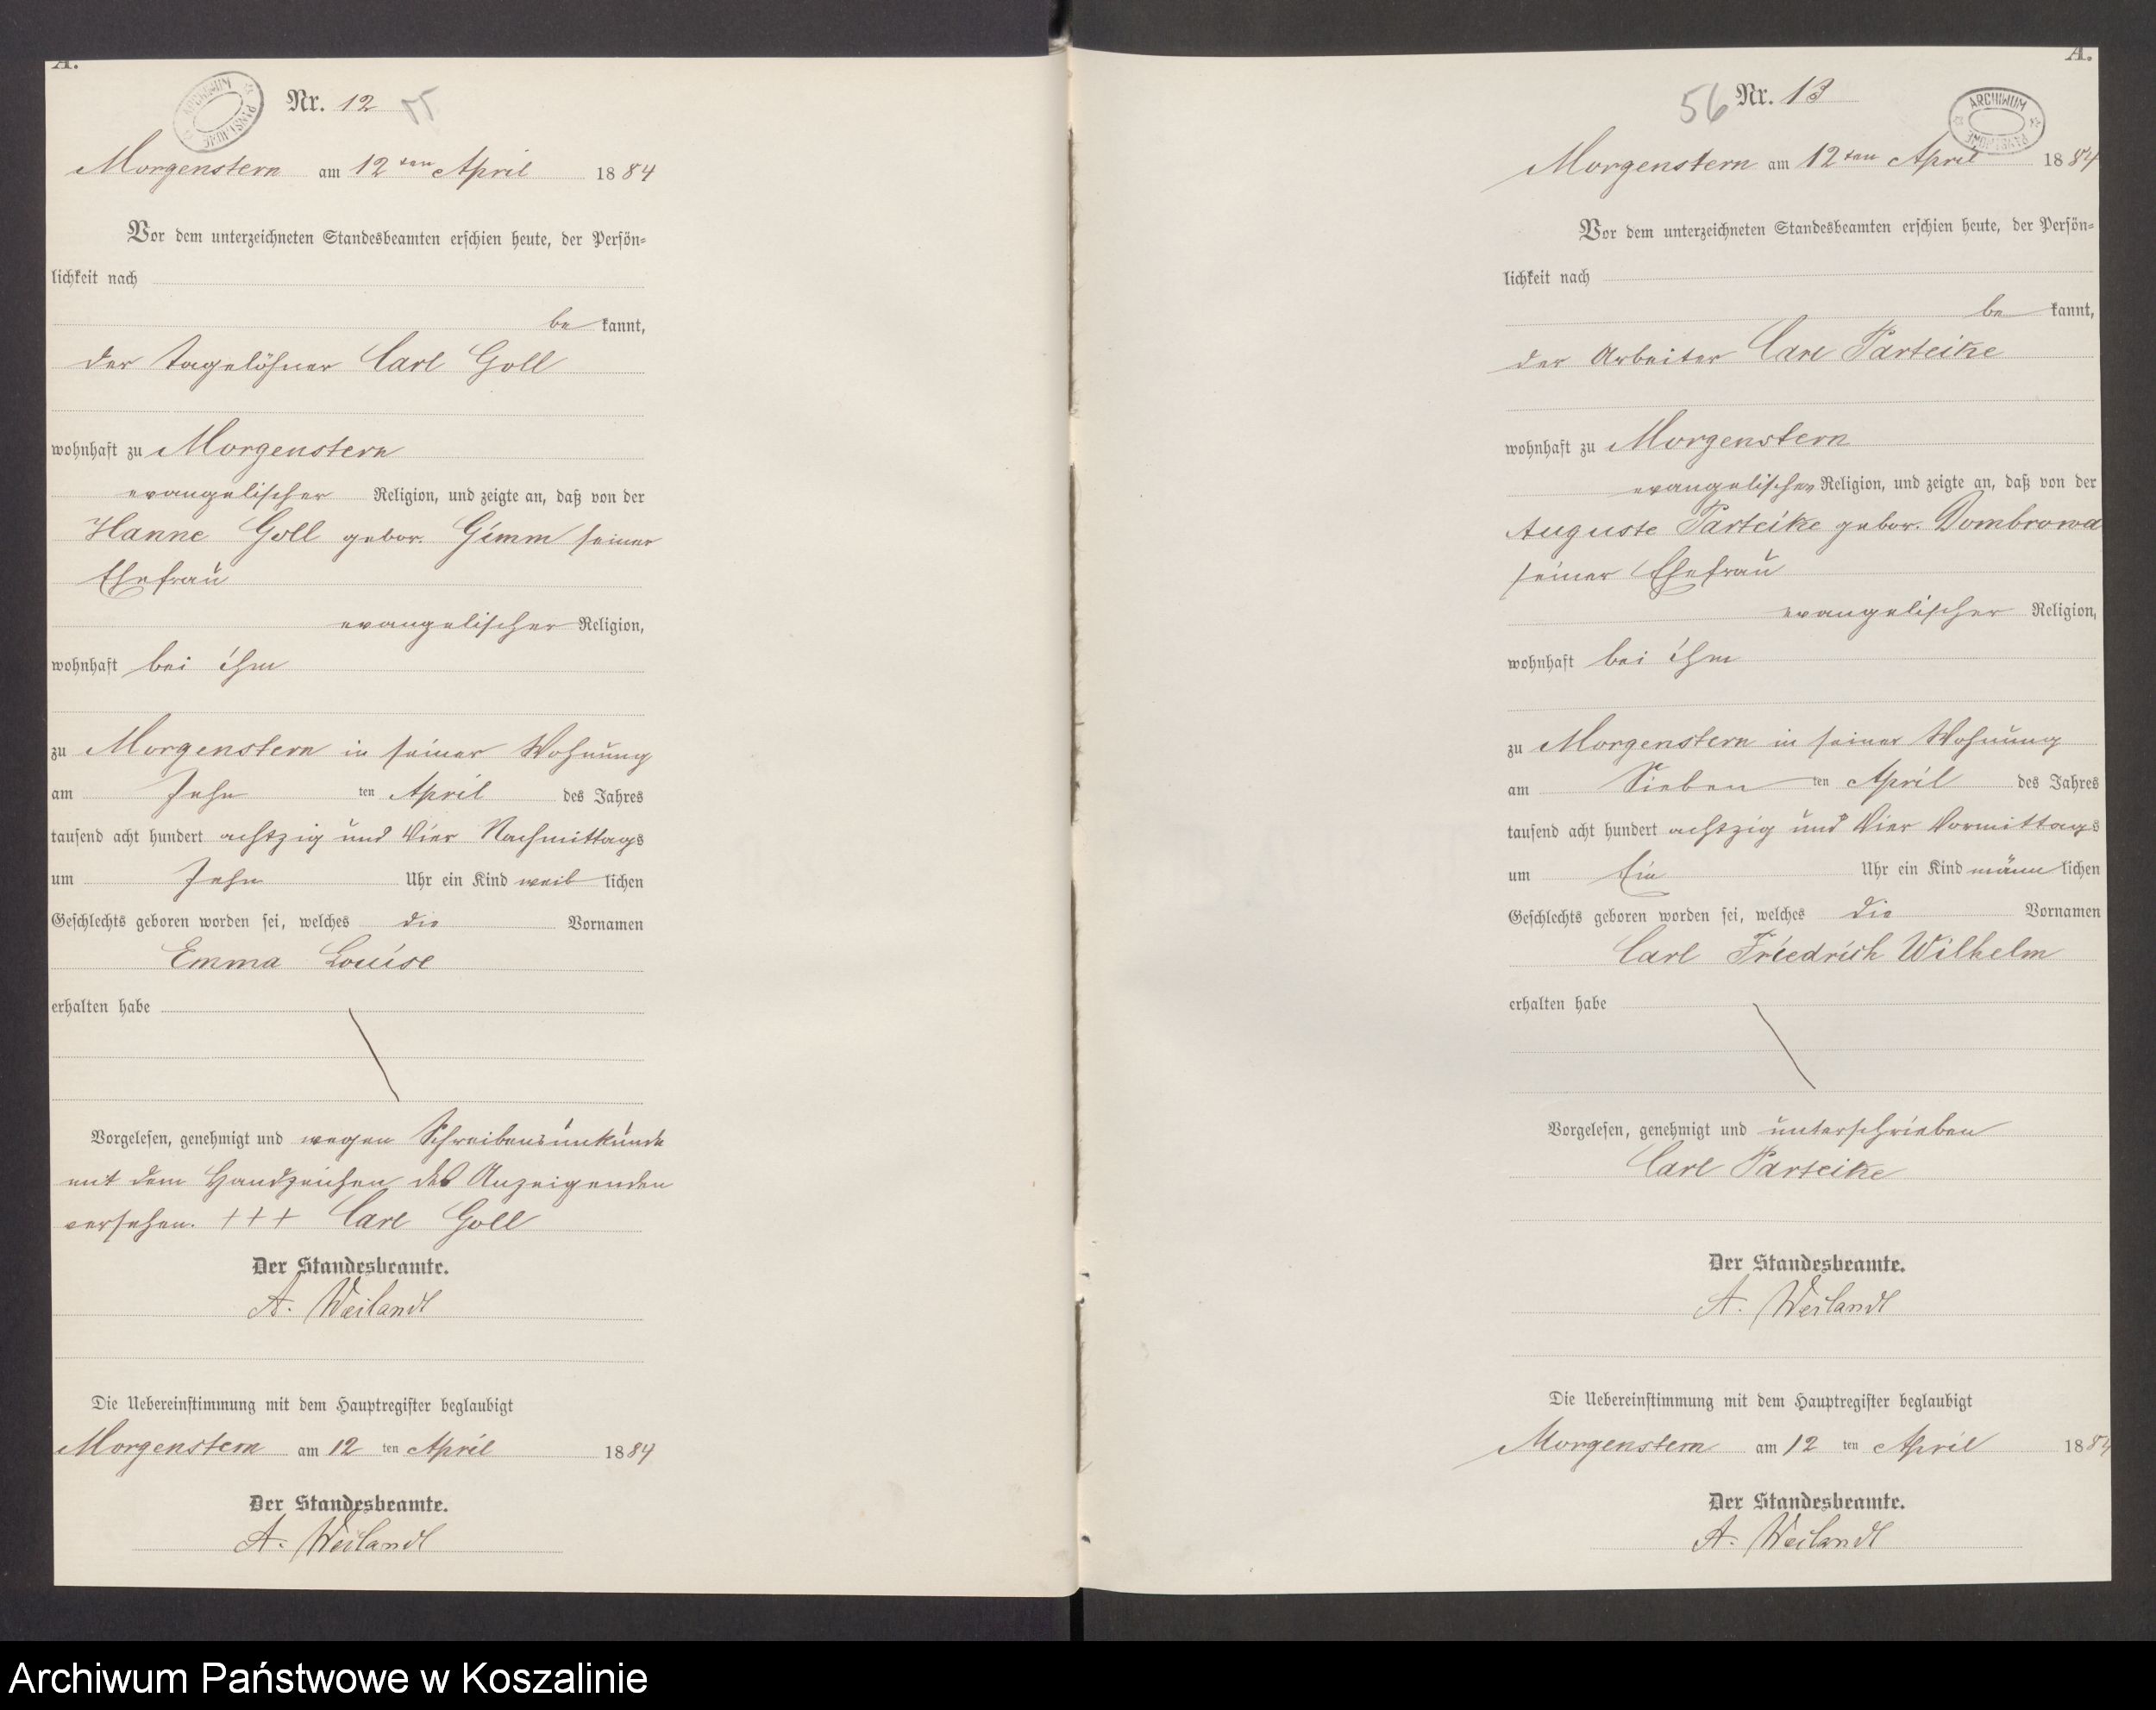 A.
ARCHIWUM PAŃSTWOWE
Nr. 12
55
Morgenstern am 12ten April 1884
Vor dem unterzeichneten Standesbeamten erschien heute, der Persön-
lichkeit nach
be kannt,
der Tagelöhner Carl Goll
wohnhaft zu Morgenstern
evangelischer Religion, und zeigte an, daß von der
Hanne Goll gebor. Gimm seiner
Ehefrau
evangelischer Religion,
wohnhaft bei ihm
zu Morgenstern in seiner Wohnung
am Zehn ten April des Jahres
tausend acht hundert achtzig und Vier Nachmittags
um Zehn Uhr ein Kind weib lichen
Geschlechts geboren worden sei, welches die Vornamen
Emma Louise
erhalten habe
Vorgelesen, genehmigt und wegen Schreibensunkunde
mit dem Handzeichen des Anzeigenden
versehen. +++ Carl Goll
Der Standesbeamte.
A. Weilandt
Die Uebereinstimmung mit dem Hauptregister beglaubigt
Morgenstern am 12 ten April 1884
Der Standesbeamte.
A. Weilandt
A.
56 Nr. 13
ARCHIWUM PAŃSTWOWE
Morgenstern am 12ten April 1884
Vor dem unterzeichneten Standesbeamten erschien heute, der Persön-
lichkeit nach
be kannt,
der Arbeiter Carl Parteike
wohnhaft zu Morgenstern
evangelischer Religion, und zeigte an, daß von der
Auguste Parteike gebor. Dombrowa
seiner Ehefrau
evangelischer Religion,
wohnhaft bei ihm
zu Morgenstern in seiner Wohnung
am Sieben ten April des Jahres
tausend acht hundert achtzig und Vier Vormittags
um Ein Uhr ein Kind männ lichen
Geschlechts geboren worden sei, welches die Vornamen
Carl Friedrich Wilhelm
erhalten habe
Vorgelesen, genehmigt und unterschrieben
Carl Parteike
Der Standesbeamte.
A. Weilandt
Die Uebereinstimmung mit dem Hauptregister beglaubigt
Morgenstern am 12 ten April 1884
Der Standesbeamte.
A. Weilandt
Archiwum Państwowe w Koszalinie